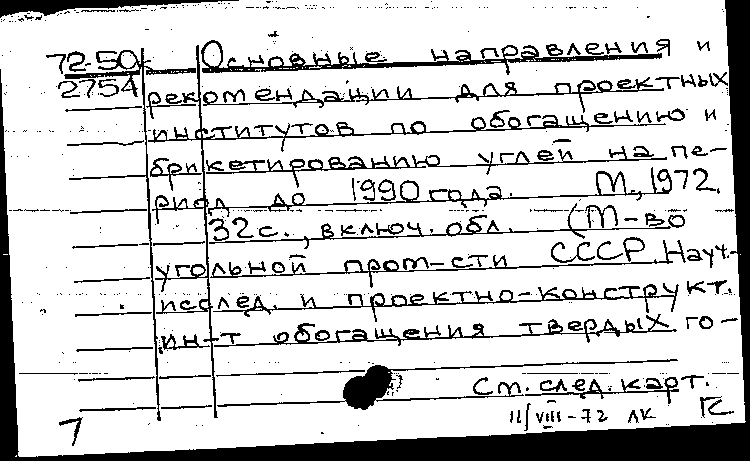 72-50к Основные направления и
2754 рекомендации для проектных
институтов по обогащению и
брикетированию углей на пе-
риод до 1990 года. М., 1972.
32 с., включ. обл. (М-во
угольной пром-сти СССР. Науч.-
исслед. и проектно-конструкт.
ин-т обогащения твердых го-
См. след. карт.
11/VIII-72 ЛК
7